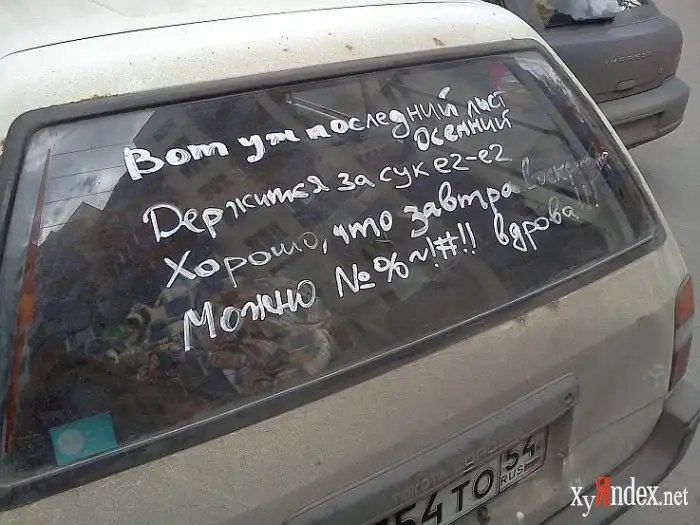 Вот уж последний лист
осенний
Держится за сук ег-ег
Хорошо, что завтра воскресенье
Можно №%~!#!! вдрова!!!
IMPREZA
TOYOTA
54 ТО 54
RUS
ХуЯndex.net